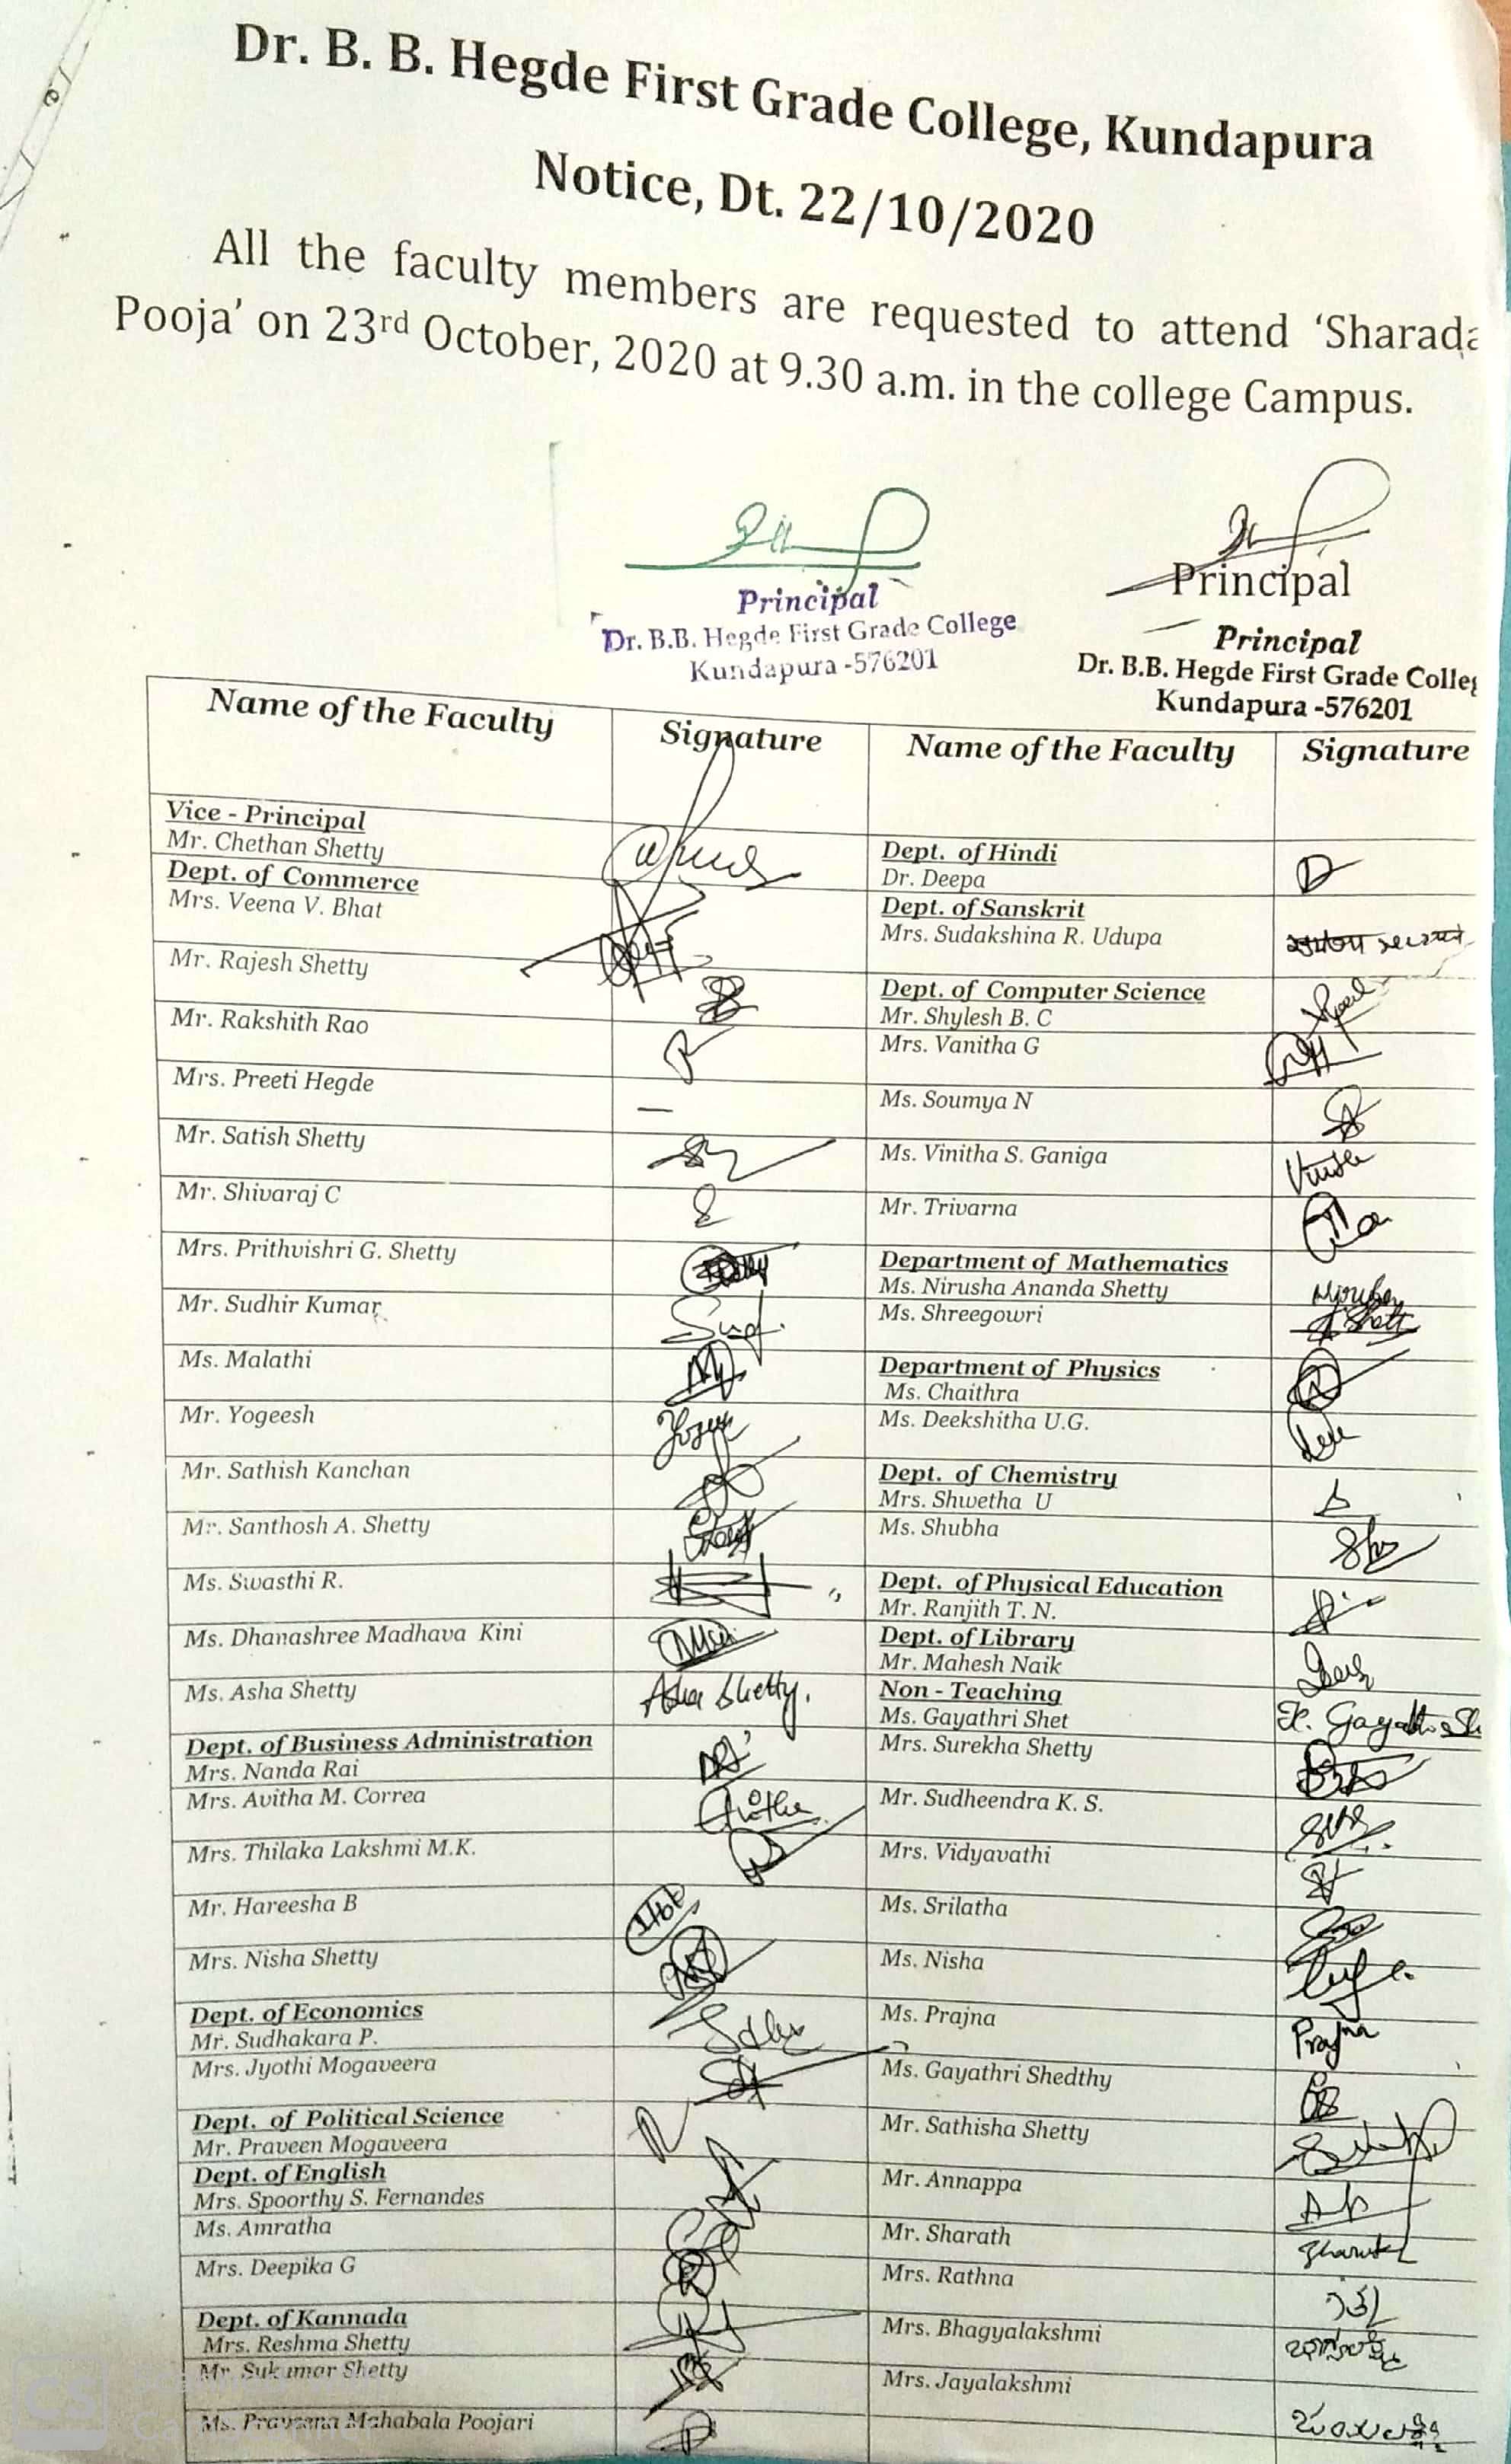 Dr. B. B. Hegde First Grade College, Kundapura
Notice, Dt. 22/10/2020
All the faculty members are requested to attend ‘Sharada
Pooja’ on 23rd October, 2020 at 9.30 a.m. in the college Campus.
Principal
Dr. B.B. Hegde First Grade College
Kundapura -576201
Principal
Principal
Dr. B.B. Hegde First Grade Colleg
Kundapura -576201
Name of the Faculty
Signature
Vice - Principal
Mr. Chethan Shetty
Dept. of Commerce
Mrs. Veena V. Bhat
Mr. Rajesh Shetty
Mr. Rakshith Rao
Mrs. Preeti Hegde
Mr. Satish Shetty
Mr. Shivaraj C
Mrs. Prithvishri G. Shetty
Mr. Sudhir Kumar
Ms. Malathi
Mr. Yogeesh
Mr. Sathish Kanchan
Mr. Santhosh A. Shetty
Ms. Swasthi R.
Ms. Dhanashree Madhava Kini
Ms. Asha Shetty
Asha Shetty.
Dept. of Business Administration
Mrs. Nanda Rai
Mrs. Avitha M. Correa
Mrs. Thilaka Lakshmi M.K.
Mr. Hareesha B
Mrs. Nisha Shetty
Dept. of Economics
Mr. Sudhakara P.
Mrs. Jyothi Mogaveera
Dept. of Political Science
Mr. Praveen Mogaveera
Dept. of English
Mrs. Spoorthy S. Fernandes
Ms. Amratha
Mrs. Deepika G
Dept. of Kannada
Mrs. Reshma Shetty
Mr. Sukumar Shetty
Ms. Praveena Mahabala Poojari
Name of the Faculty
Signature
Dept. of Hindi
Dr. Deepa
Dept. of Sanskrit
Mrs. Sudakshina R. Udupa
Dept. of Computer Science
Mr. Shylesh B. C
Mrs. Vanitha G
Ms. Soumya N
Ms. Vinitha S. Ganiga
Mr. Trivarna
Department of Mathematics
Ms. Nirusha Ananda Shetty
Ms. Shreegowri
Department of Physics
Ms. Chaithra
Ms. Deekshitha U.G.
Dept. of Chemistry
Mrs. Shwetha U
Ms. Shubha
Dept. of Physical Education
Mr. Ranjith T. N.
Dept. of Library
Mr. Mahesh Naik
Non - Teaching
Ms. Gayathri Shet
Mrs. Surekha Shetty
Mr. Sudheendra K. S.
Mrs. Vidyavathi
Ms. Srilatha
Ms. Nisha
Ms. Prajna
Prajna
Ms. Gayathri Shedthy
Mr. Sathisha Shetty
Mr. Annappa
Mr. Sharath
Mrs. Rathna
Mrs. Bhagyalakshmi
Mrs. Jayalakshmi
CS